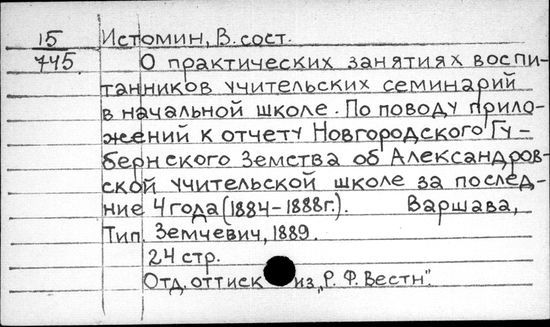 15 Истомин, В. сост.
745. О практических занятиях воспи-
танников учительских семинарий
в начальной школе. По поводу прило-
жений к отчету Новгородского Гу-
бернского Земства об Александров-
ской учительской школе за послед-
ние 4 года (1884-1888г.). Варшава,
Тип. Земчевич, 1889.
24 стр.
Отд. оттиск из „Р. Ф. Вестн".